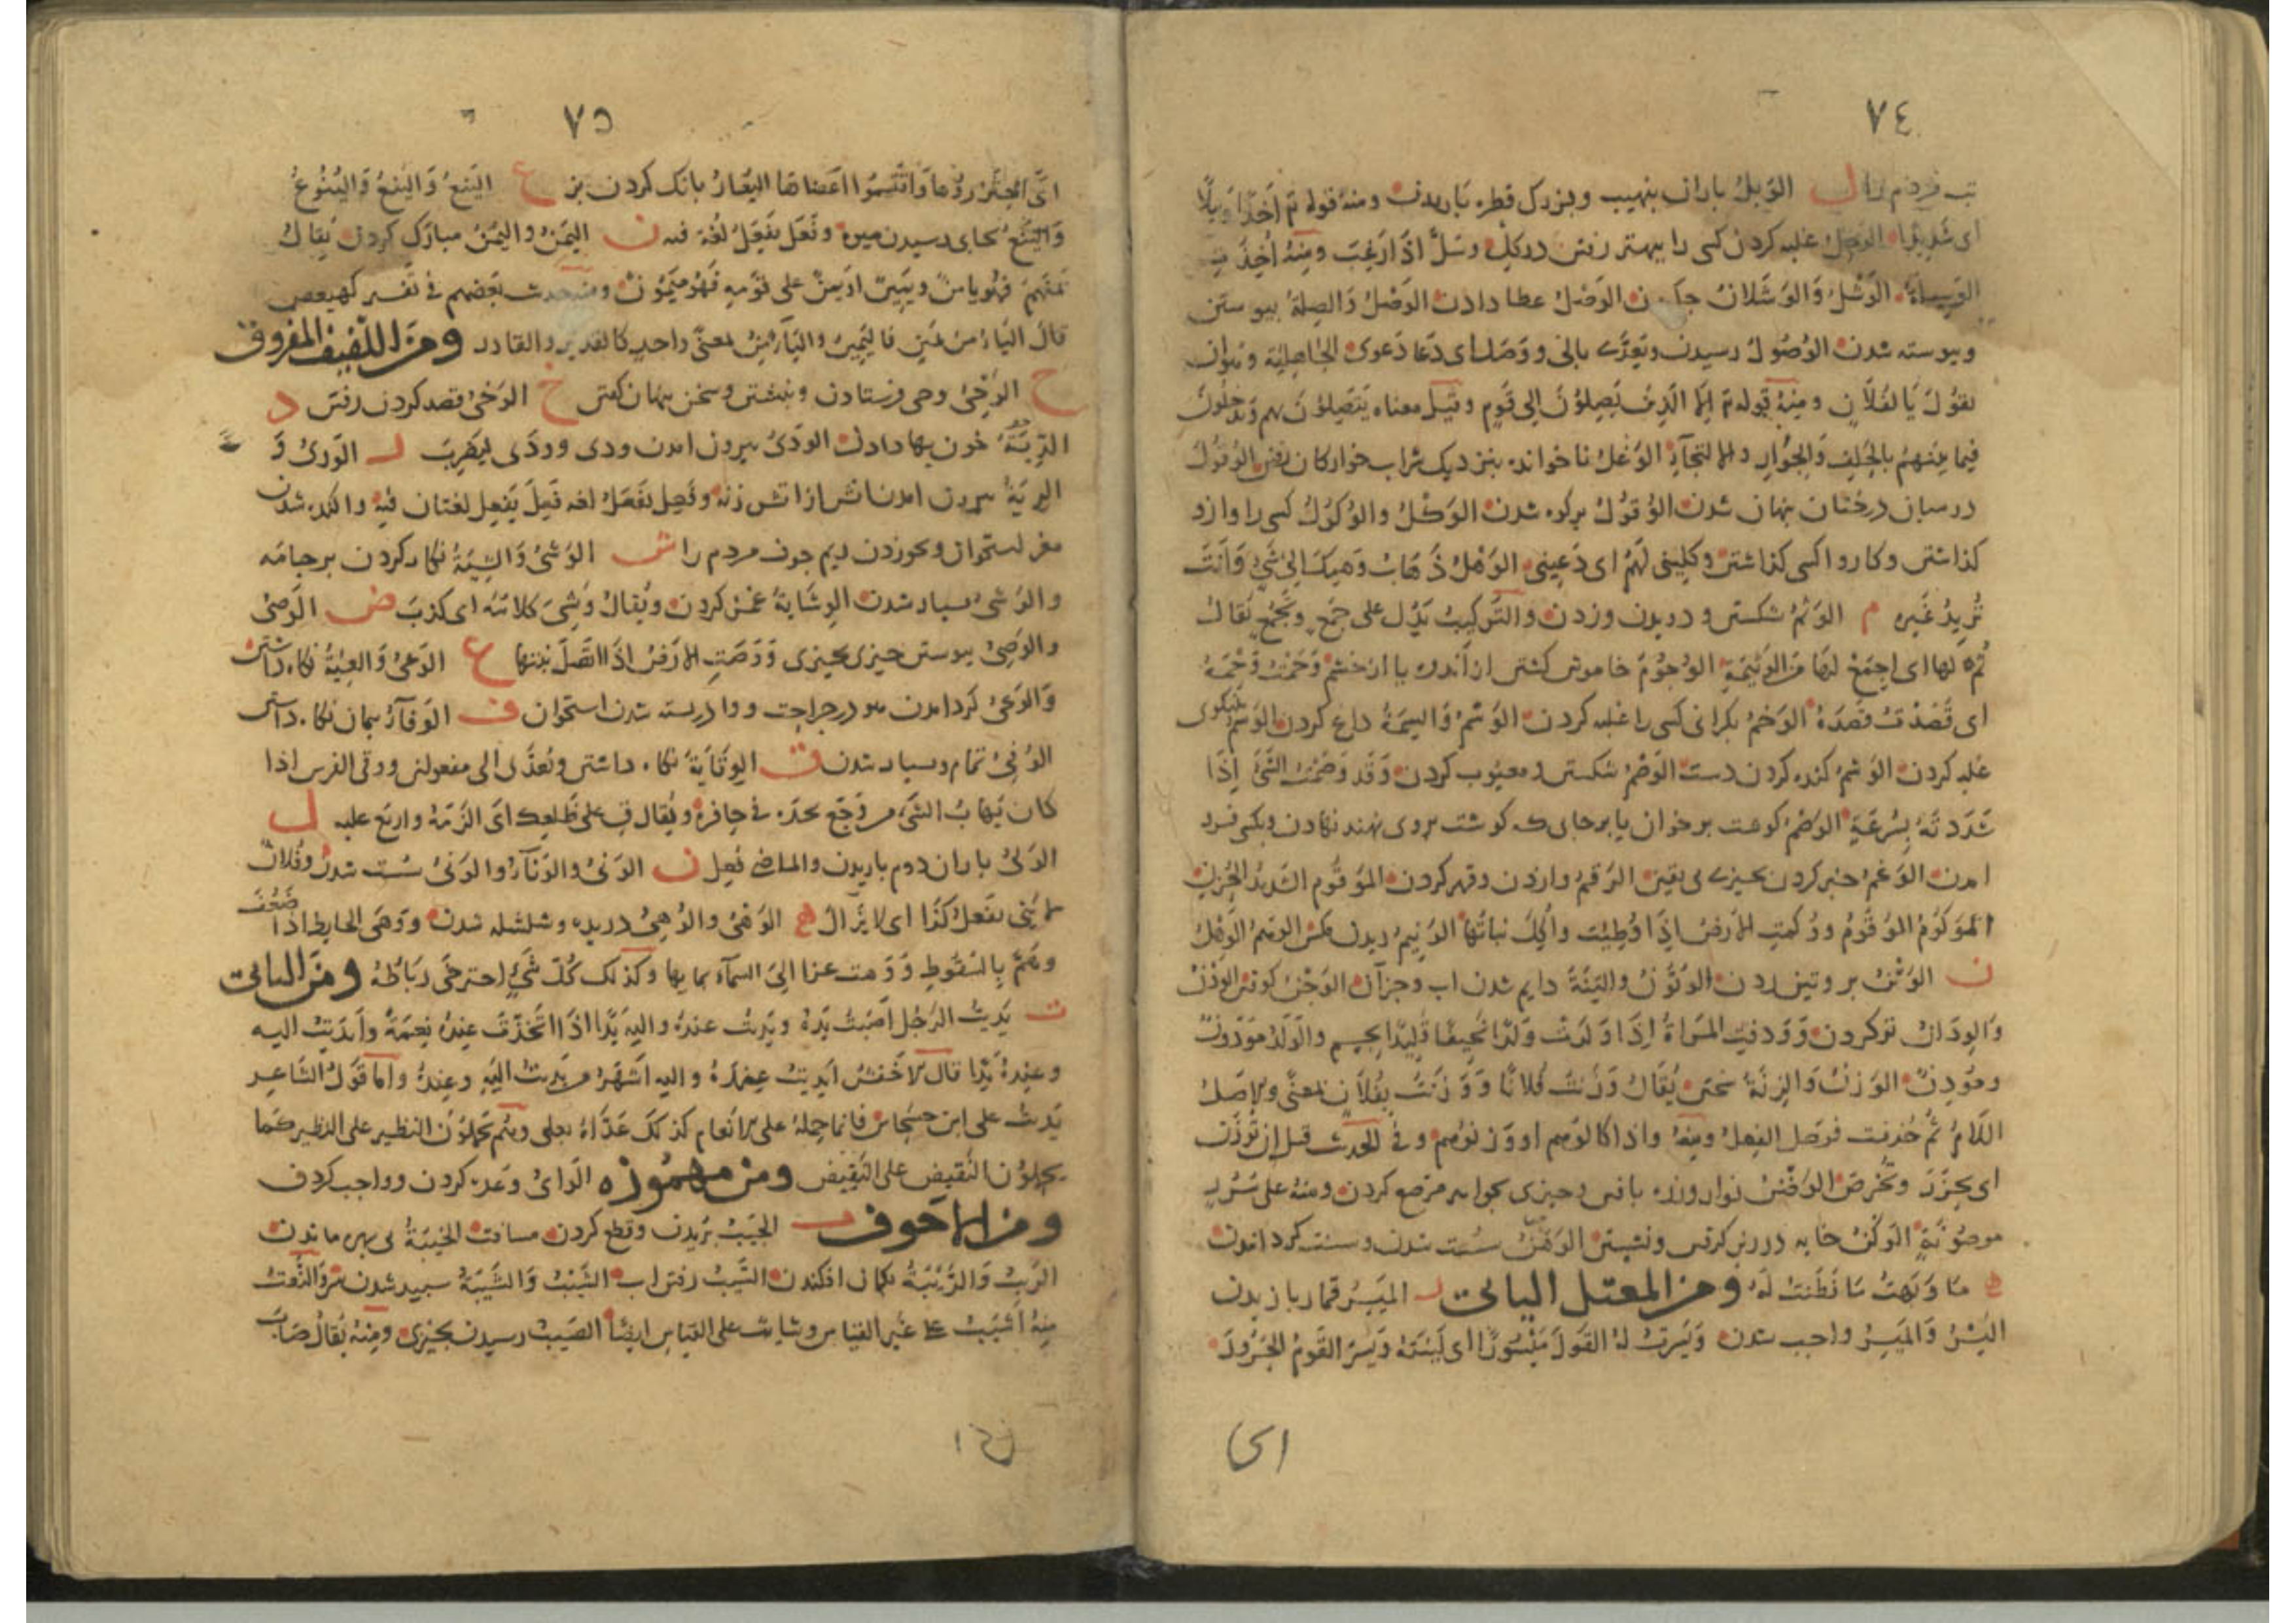 ٧٤
ل الوَبلُ باران بنهیب وبزرک قطره باریدن ومنه قوله تم اَخذًا وَبیلًا
ای شَدِیدًا الوَسل غلبه کردن کسی را ببهتر رفتن در کل وَسَلَ اذَا رَغِبَ ومِنْهُ اُخِذَتِ
الوَسِیلَةُ الوَشْلُ وَالوَشَلانُ الوَصْلُ عطا دادن الوَصْلُ وَالصِلَةُ پیوستن
وپیوسته شدن الوُصُولُ رسیدن ویُعَدّی بالی ووَصَل ای دَعَا دَعوَی الجَاهِلِیَّة وهوان
یقُولَ یَا لَفُلَانٍ ومِنْهُ قوله تم اِلَّا الَّذِینَ یَصِلُونَ اِلَی قَومٍ وقیلَ معناه یَتَّصِلُونَ بهم ویَدخُلُونَ
فیما بَینَهُم بِالحِلفِ وَالجِوَارِ والالتجآءِ الوَغلُ ناخوانده بنزدیک شراب خوارکان رفتن الوُغُولُ
درمیان درختان پنهان شدن الوُقُولُ برکوه شدن الوَکْلُ والوُکُولُ کسی را وازو
کذاشتن وکار وا کسی کذاشتن وکِلِینی لِهَمٍّ ای دَعِینی الوَهْلُ ذَهَابُ وَهمِکَ اِلی شَیءٍ وَاَنتَ
تُرِیدُ غَیرَه م الوَثمُ شکستن ودویدن وزدن والتَّرکیبُ یَدُلُّ علی جَمعٍ وتَجَمُّعٍ یُقَالُ
ثِم لها ای اِجمَعْ لهَا مِنَ الوَثیمَةِ الوُجُومُ خاموش کشتن از اندوه یا از خشم وَخَمْتُ وَخْمَهُ
ای قَصَدْتُ قَصدَهُ الوَخمُ بکرانی کسی را غلبه کردن الوَسمُ وَالسِمَةُ داغ کردن الوَسمُ بنیکوی
غلبه کردن الوَشمُ کنده کردن دست الوَصْمُ شکستن ومعیوب کردن وَقَد وَصَمْتُ الشَّیءَ اِذَا
شَدَدتَهُ بِسُرعَةٍ الوَضْمُ کوشت برخوان یا برجای که کوشت بروی نهند نهادن وبکسی فرود
امدن الوَغمُ خبر کردن بچیزی بی یقین الوَقمُ وازدن وقهر کردن المَوقُوم الشَدِیدُ الحُزنِ
المَوکُومُ المَوقُومُ ووُکِمَتِ الاَرضُ اِذَا وُطِئَت واُکِلَ نباتُهَا الوَنیمُ ریدن مکس الوَهمُ الوَهْلُ
ن الوَتْنُ بر وتین زدن الوُتُونُ والتِنَةُ دایم شدن اب وجزآن الوَجْنُ کوفتن الوَدْنُ
وَالوِدَانُ ترکردن وَوَدَنَتِ المَرْاَةُ اِذَا وَلَدَتْ وَلَدًا نَحِیفًا والوَلَدُ مَودُونٌ
ومُودَنٌ الوَزْنُ وَالزِنَةُ سختن یُقَالُ وَزَنْتُ فُلَانًا وَوَزَنْتُ بِفُلَانٍ بمعنًی والاصلُ
اللّامُ ثُمَّ حُذِفَت فوُصِلَ الفِعلُ ومِنهُ واذا کالوهم اووزنوهم وفی الحدیث قبل ان تُوزَنَ
ای تُحزَرَ وتُخرَصَ الوَضْنُ نوار وزره بافتن وچیزی بجواهر مرصع کردن ومنه علی سُرُرٍ
موضُونَةٍ الوَکْنُ خایه در زیر کرفتن ونشستن الوَهْنُ سُست شدن وسست کردانیدن
ه مَا وَبَهتُ مَا فَطِنتُ لَهُ ومن المعتل الیائی ر المَیسِرُ قمار بازیدن
الیَسْرُ وَالمَیسِرُ واجب شدن وَیَسَرتُ لهُ القَولَ مَیْسُورًا ای لَیَّنتَهُ ویَسَرَ القَومُ الجَزُورَ
ای
٧٥
ای اجتَزَرُوهَا وَاقْتَسَمُوا اَعضَاءَهَا الیُعَارُ بانک کردن بز ع الیَنعُ وَالیُنعُ وَالیُنُوعُ
وَالیَنَعُ بجای رسیدن میوه وفَعَلَ یفعَلُ لغة فیه ن الیَمنُ والیُمنُ مبارک کردن یُقَالُ
یَمَنَهُم فَهُوَ یَامِنٌ ویَمِینٌ اذ یُمِنَ علی قَومِهِ فَهُوَ مَیمُونٌ ومنه حدیث بَعضِهِم فی تفسیر کهیعص
قالَ الیَاءُ مِنْ یَمِینٍ فَالیَمِینُ والیَامِنُ بمعنًی واحدٍ کالقَدیرِ والقادر ومن اللفیف المفروق
ح الوَحْیُ وحی فرستادن ونبشتن وسخن پنهان کفتن خ الوَخیُ قصد کردن رفتن د
الدِّیَةُ خون بها دادن الوَدْیُ بیرون امدن ودی وودَی لِیَضرِبَ ر الوَریُ وَ
الرِیَةُ بیرون امدن اتش از اتش زنه وفَعِلَ یفعَلُ لغه فَعِلَ یَفعِل لغتان فیه واکنده شدن
مغز استخوان وبخوردن ریم جوف مردم را ش الوَشْیُ وَالشِیَةُ نکار کردن بر جامه
والوَشیُ بسیار شدن الوِشَایَةُ غمز کردن ویُقالُ وَشَی کلامَهُ ای کذبَ ص الوَصْیُ
والوَصِیُ پیوستن چیزی بچیزی وَوَصَتِ الاَرضُ اذَا اتَّصَلَ نبتها ع الوَعْیُ وَالعِیَةُ نکاه داشتن
وَالوَعیُ کرد امدن ریم در جراحت ووا در بسته شدن استخوان ف الوَفَاءُ پیمان نکاه داشتن
الوُفِیُّ تمام وبسیار شدن ق الوِقَایَةُ نکاه داشتن ویُعَدَّی الی مفعولین ووقی الفرس اذا
کان یَهَابُ الشَیءَ مِن وَجَعٍ یجده فی حافره ویُقال قِ علی ظَلعِکَ ای الزَمهُ واربَع علیه ل
الوَلیُ باران دوم باریدن والماضی فُعِل ن الوَنیُ والوَنَاءُ والوَنیُ سُست شدن وفُلان
لا یَنِی یفعَلُ کذَا ای لا یَزَالُ ه الوَهیُ والوُهِیُّ دریده وشلشله شدن ووَهَی الحایط اذا ضَعُفَ
وهَمَّ بِالسُقُوطِ وَوَهَت عزالِیَ السمآء بمایها وکذلک کُلُّ شَیءٍ استرخَی رِبَاطُهُ ومن الیائی
یَدَیتُ الرَجُلَ اَصَبتُ یَدَهُ ویَدَیتُ عِندَهُ والیه یَدًا اذَا اتَّخَذتَ عِندَهُ نِعمَةً وَاَیدَیتُ الیه
وعِندَهُ یَدًا قال الاَخفش اَیدَیتُ عِندَهُ والیه اَشهَرُ مِن یَدَیتُ الَیهِ وعِندَهُ واَمَا قَولُ الشَاعِر
یَدَیتُ علی ابن حَسحاسٍ فَاِنما حملهُ علی الاَنعامِ کذلکَ عَدَّاهُ بعلی وهُم یَحمِلُونَ النظیرَ علی النظیر کَما
یحملون النَقیض علی النَقِیض ومن مهموزه الوَایُ وعده کردن وواجب کردن
ومن الاجوف ب الجَیبُ بُریدن وقطع کردن مسافت الخَیبَةُ بی بهره ماندن
الرَیبُ وَالرِیبَةُ بکمان افکندن السَّیبُ رفتن اب الشَیبُ وَالشَیبَةُ سپید شدن سر وَالنَّعتُ
مِنهُ اَشیَبُ علی غیر القیاس وشایبٌ علی القیاس ایضًا الصَیبُ رسیدن بچیزی ومِنهُ یُقَالُ صَابَ